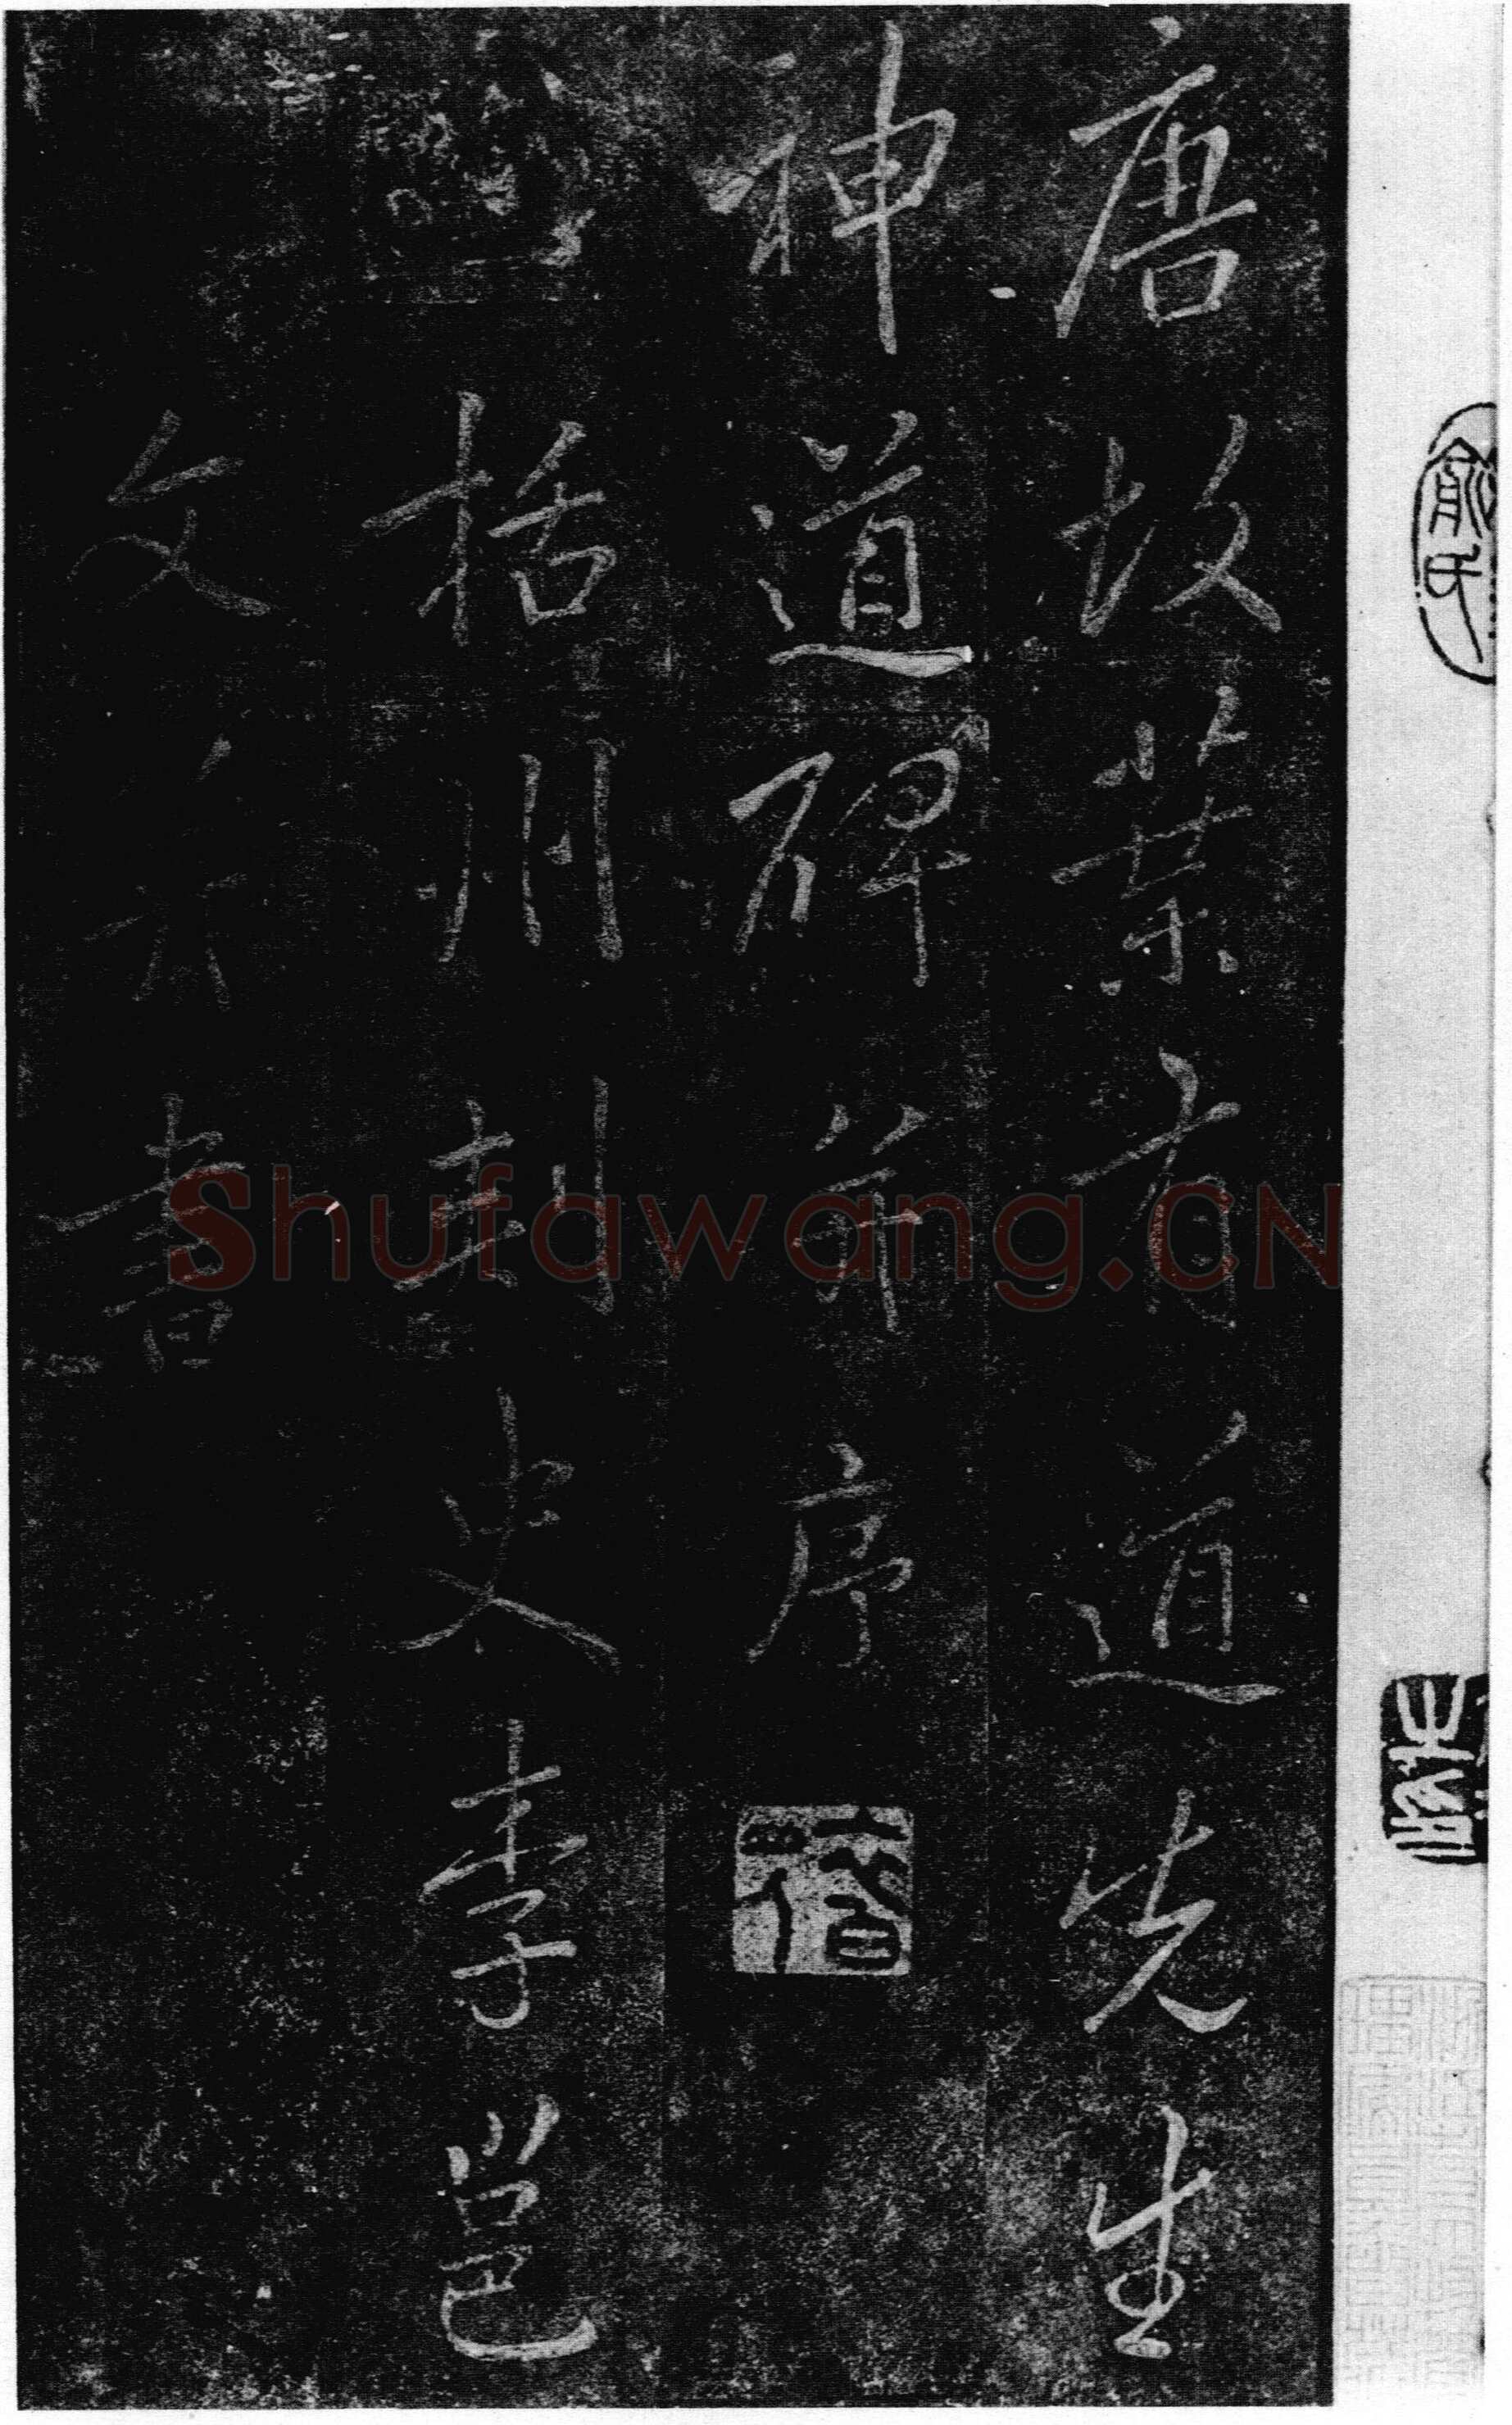 唐故葉有道先生
神道碑并序
括州刺史李邕
文并書
Shufawang.CN